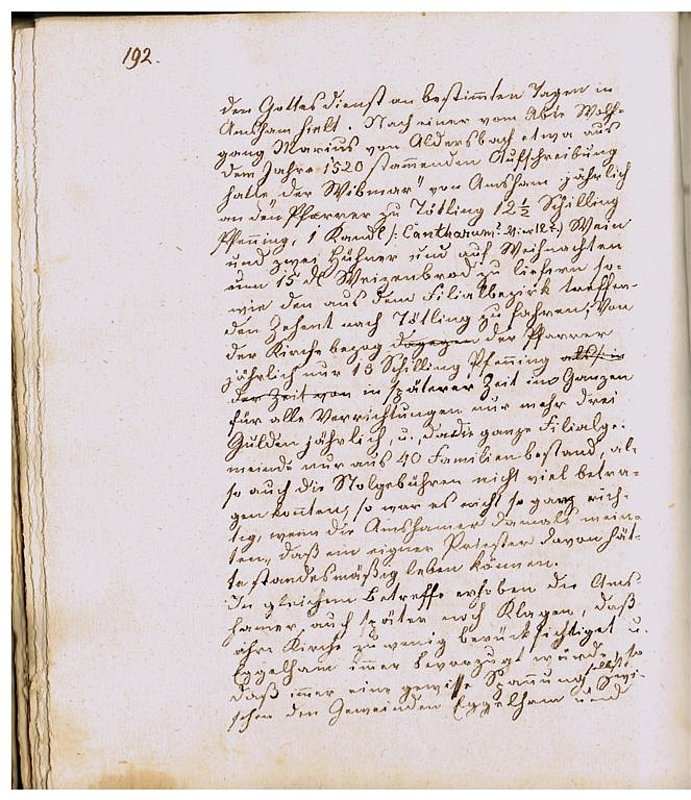 192.
den Gottesdienst an bestimmten Tagen in
Amsham hielt. Nach einer vom Abte Wolf-
gang Marius von Aldersbach etwa aus
dem Jahre 1520 stammenden Aufschreibung
hatte der "Widmar" von Amsham jährlich
an den Pfarrer zu Tötling 12 1/2 Schilling
Pfenning, 1 Kandl /: Cantharum Wein
und zwei Hühner und auf Weihnachten
um 15 dl Weizenbrod zu liefern so-
wie den aus dem Filialbezirk treffen-
den Zehent nach Tötling zu fahren; Von
der Kirche bezog dagegen der Pfarrer
jährlich nur 13 Schilling Pfenning
der Zeit von in späterer Zeit im Ganzen
für alle Verrichtungen nur mehr drei
Gulden jährlich, u. da die ganze Filialge-
meinde nur aus 40 Familien bestand, al-
so auch die Stolgebühren nicht viel betra-
gen konnten, so war es nicht so ganz rich-
tig, wenn die Amshamer damals mein-
ten, daß ein eigner Priester davon hät-
te standesmäßig leben können.
In gleichem Betreffe erhoben die Ams-
hamer auch später noch Klagen, daß
ihre Kirche zu wenig berücksichtiget u.
Eggelham immer bevorzugt würde, so
daß immer eine gewisse Spannung selbst zwi-
schen den Gemeinden Eggelham und